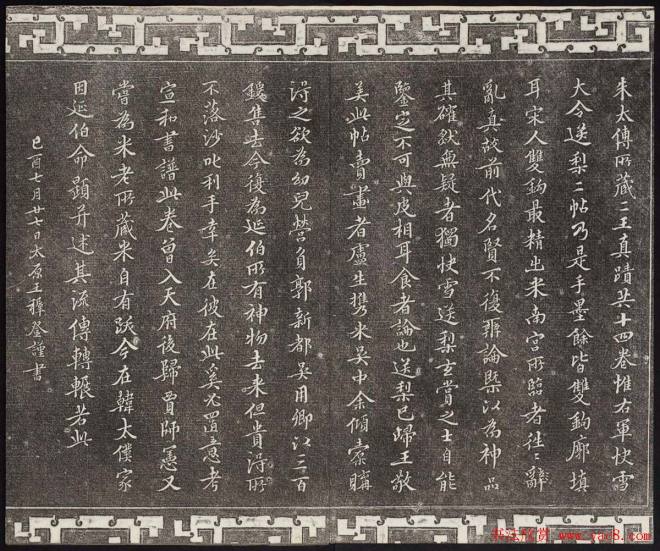 朱太傅所藏二王真蹟共十四卷惟右軍快雪
大令送梨二帖乃是手墨餘皆雙鉤廓填
耳宋人雙鉤最精出米南宮所臨者往〻
亂真故前代名賢不復辨論槩以為神品
其確然無疑者獨快雪送梨玄賞之士自能
鑒定不可與皮相耳食者論也送梨已歸王敬
美此帖賣畫者盧生攜來吳中余傾橐購
得之欲為幼兒營負郭新都吳用卿以三百
鍰售去今復為延伯所有神物去來但貴得所
不落沙叱利手幸矣在彼在此奚足置意考
宣和書譜此卷曾入天府後歸賈師憲又
嘗為米老所藏米自有跋今在韓太僕家
因延伯命題并述其流傳轉輾若此
己酉七月廿七日太原王穉登謹書
书法欣赏 www.yac8.com